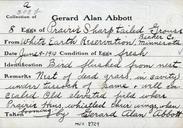 Collection of Gerard Alan Abbott
8 Eggs of Prairie Sharp tailed Grouse
From White Earth Reservation, Becker Co. Minnesota
Date June 1911 Condition of Eggs fresh
Identification Bird flushed from nest
Remarks Nest of dead grass, in cavity
under tussock of same & well con
cealed Old stubble field where
Prairie Hens, whistled their wings when
booming
Taken by Gerard Alan Abbott